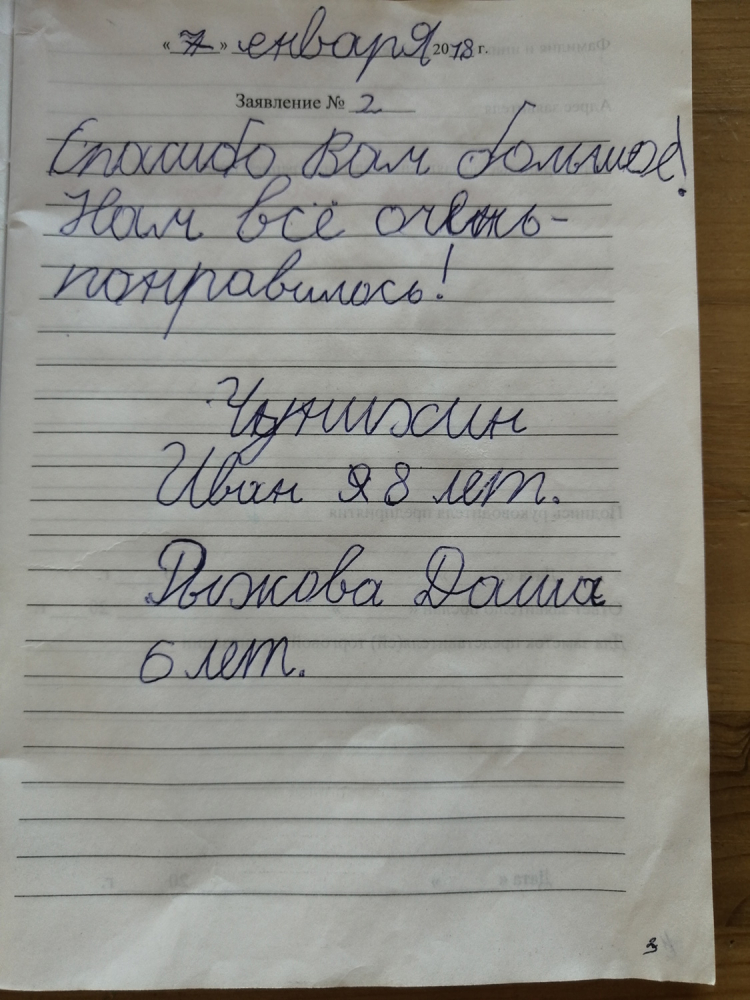 « 7 » енваря 2018 г.
Заявление № 2
Спасибо Вам большое!
Нам всё очень-
понравилось!
Чунихин
Иван я 8 лет.
Рыжова Даша
6 лет.